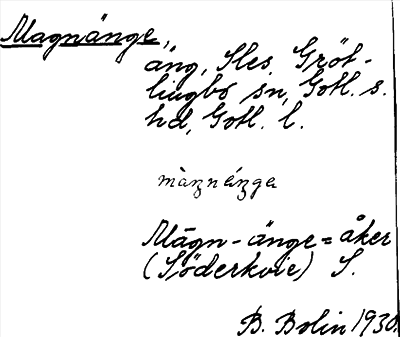 Magnänge,
äng, Sles, Gröt-
lingbo sn, Gotl. s.
hd, Gotl. l.
màᵹnéᵹga
Magn-änge = åker
(Söderkvie) S.
B. Bolin 1930.